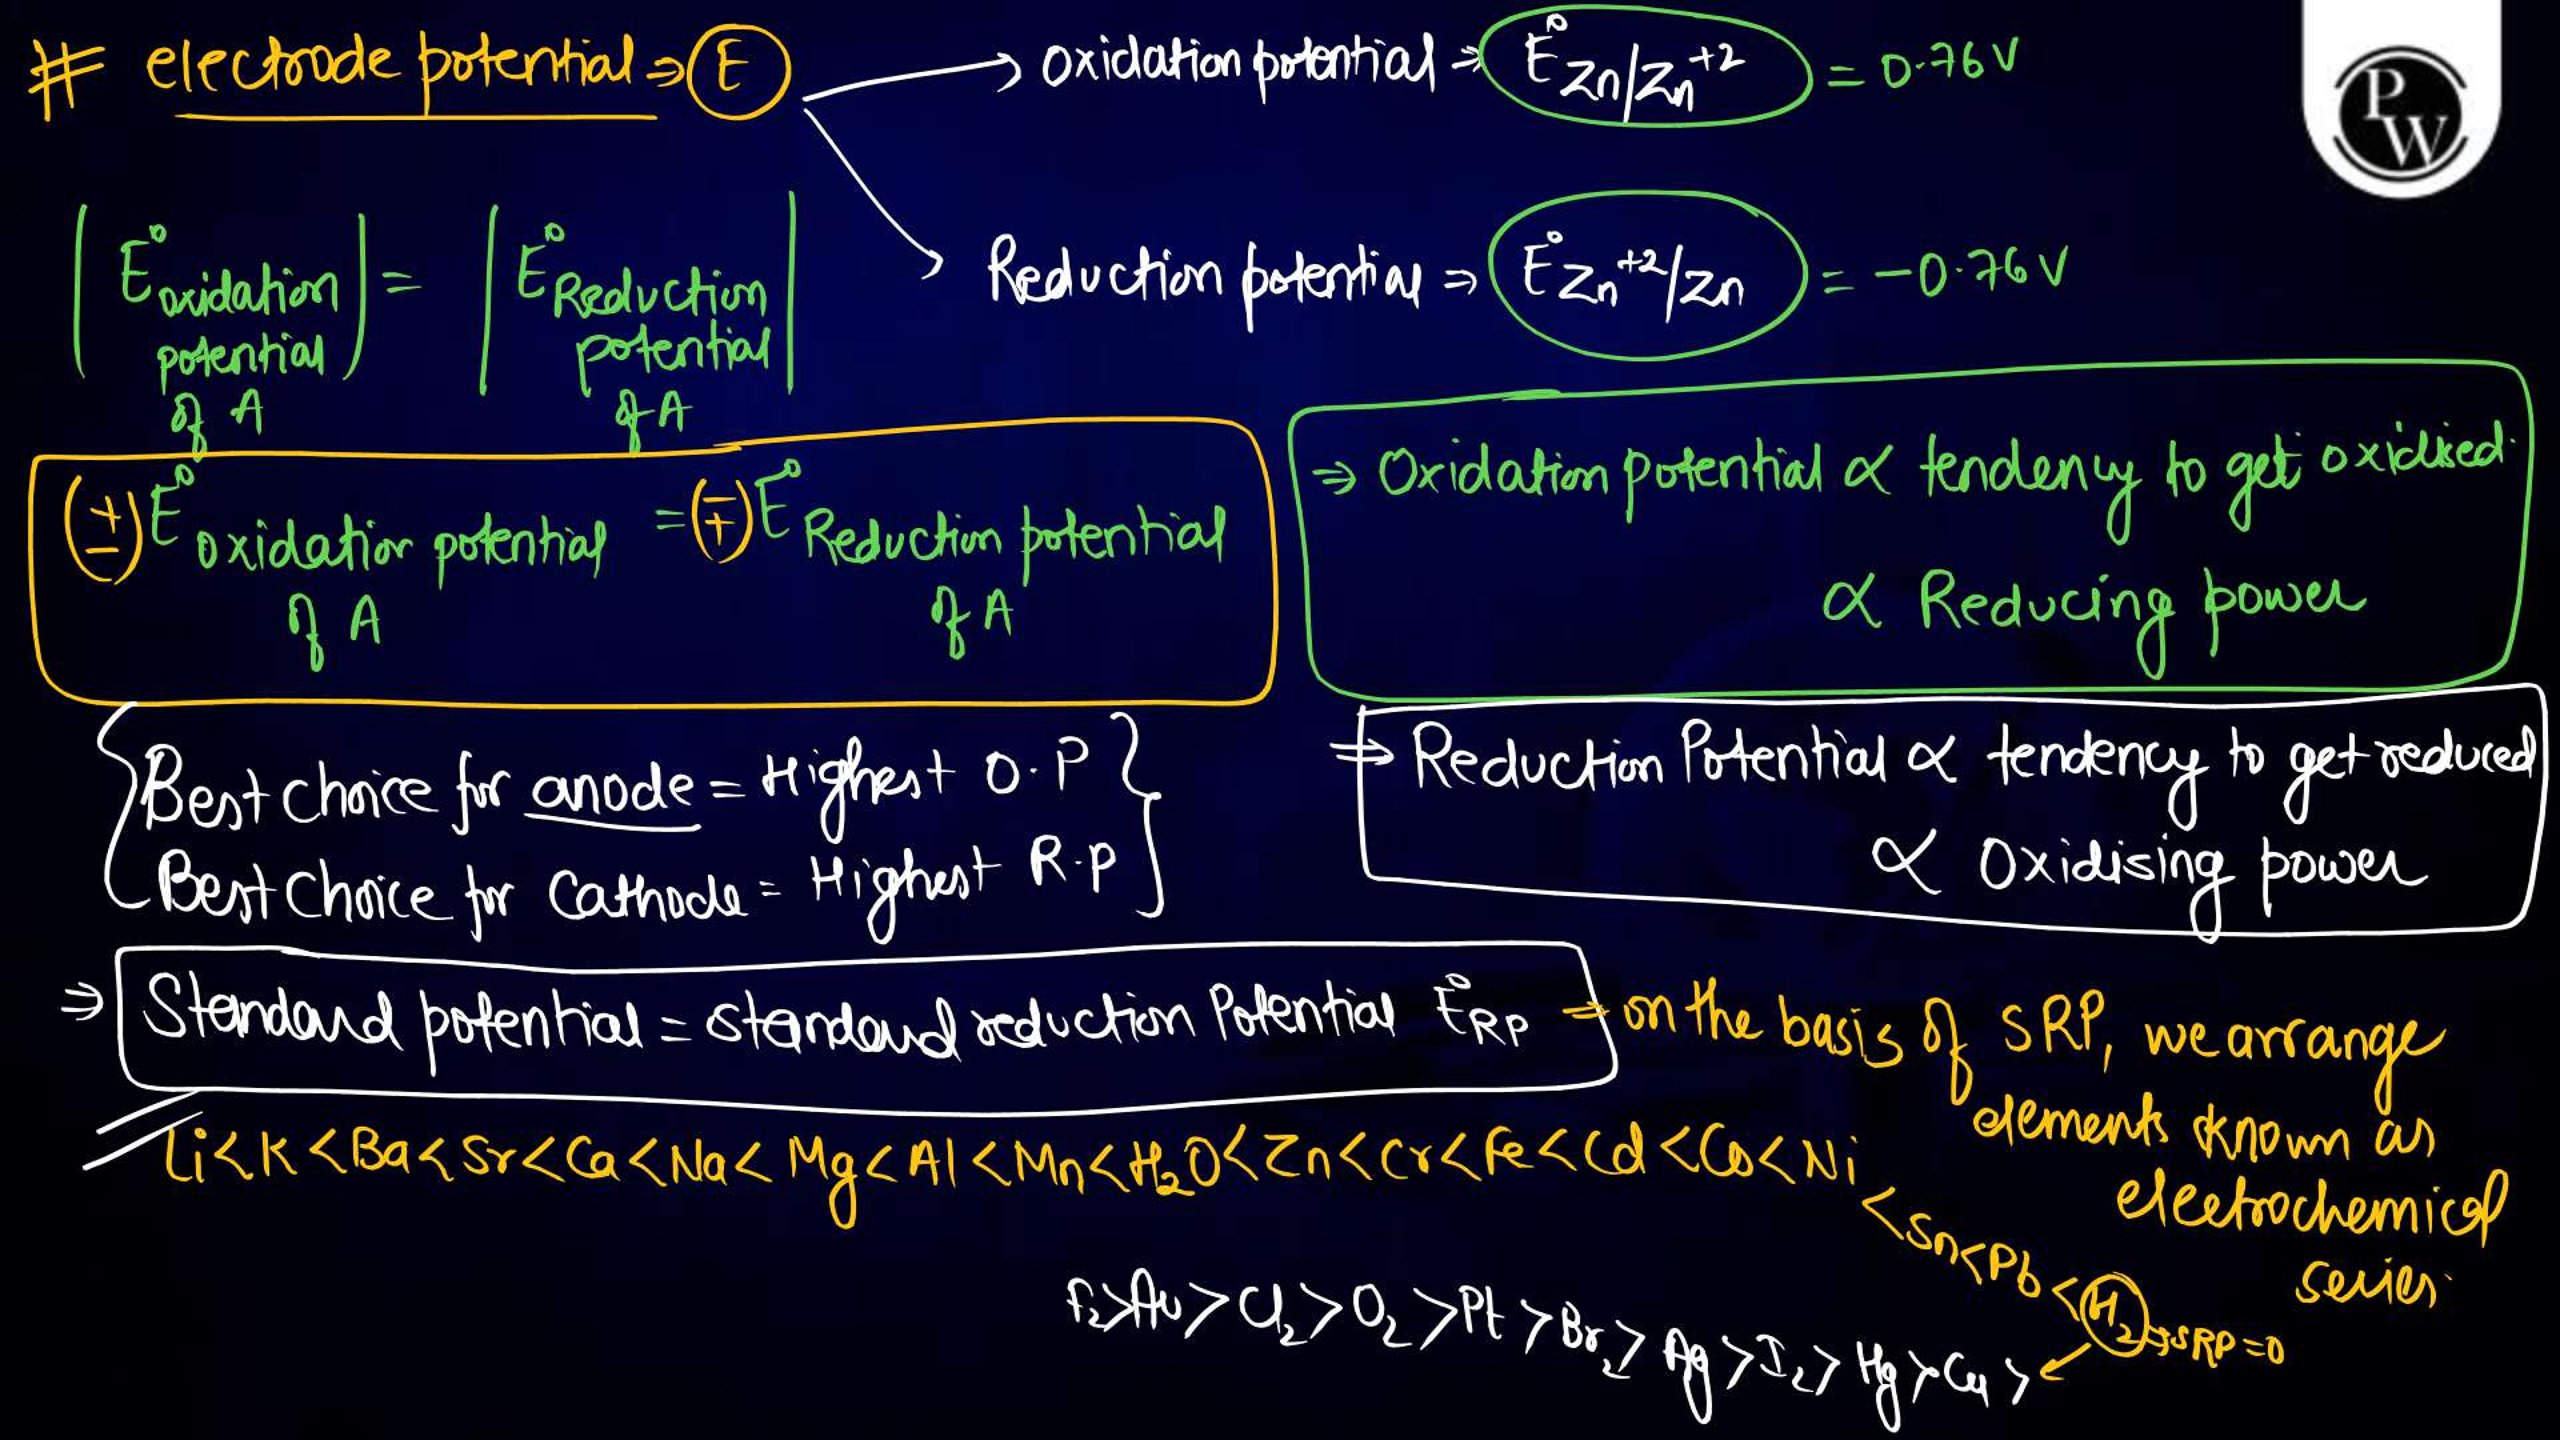 # electrode potential ⇒ E
→ oxidation potential ⇒ E° Zn/Zn⁺² = 0.76 V
→ Reduction potential ⇒ E° Zn⁺²/Zn = -0.76 V
PW
|E° oxidation potential of A| = |E° Reduction potential of A|
(±) E° oxidation potential of A = (∓) E° Reduction potential of A
⇒ Oxidation potential ∝ tendency to get oxidised.
∝ Reducing power
{Best choice for anode = Highest O.P}
Best choice for Cathode = Highest R.P
⇒ Reduction Potential ∝ tendency to get reduced
∝ Oxidising power
⇒ Standard potential = standard reduction Potential E°RP ⇒ on the basis of SRP, we arrange
elements known as
electrochemical
series.
Li < K < Ba < Sr < Ca < Na < Mg < Al < Mn < H₂O < Zn < Cr < Fe < Cd < Co < Ni
< Sn < Pb < H₂ → SRP = 0
F₂ > Au > Cl₂ > O₂ > Pt > Br₂ > Ag > I₂ > Hg > Cu >